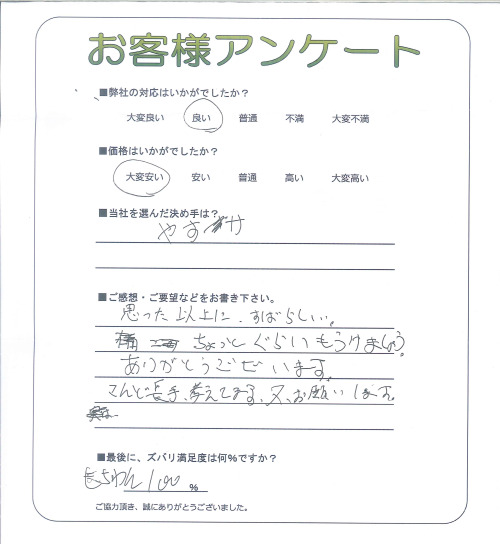 お客様アンケート
■弊社の対応はいかがでしたか？
大変良い 良い 普通 不満 大変不満
■価格はいかがでしたか？
大変安い 安い 普通 高い 大変高い
■当社を選んだ決め手は？
やす
■ご感想・ご要望などをお書き下さい。
思った以上に、すばらしい。
ちょっとぐらいもうけましょう。
ありがとうございます。
こんど長手、考えてます、又、お願いします。
■最後に、ズバリ満足度は何％ですか？
100 ％
ご協力頂き、誠にありがとうございました。